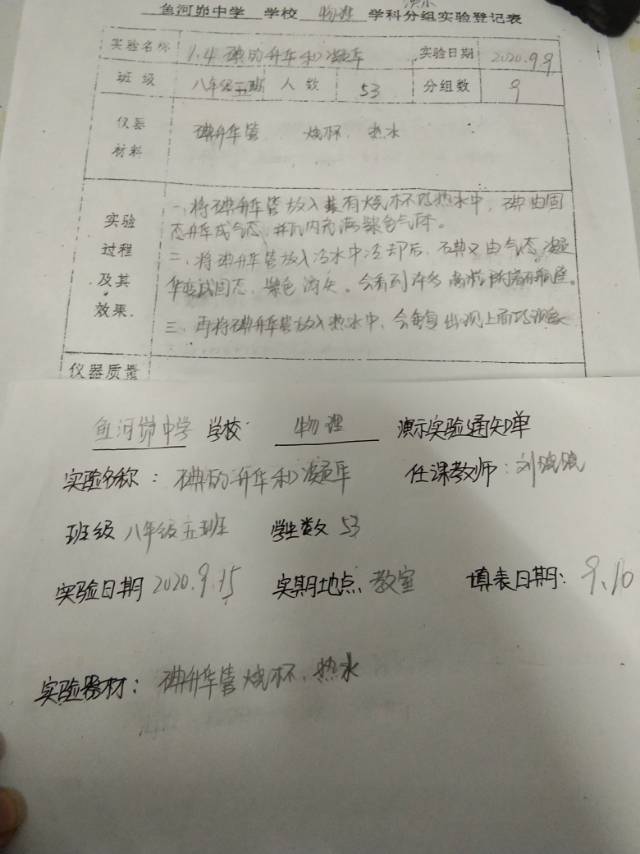 演示
鱼河峁中学 学校 物理 学科分组实验登记表
实验名称 1.4 碘的升华和凝华 实验日期 2020.9.9
班级 八年级五班 人数 53 分组数 9
仪器材料 碘升华管 烧杯 热水
实验过程及其效果
一、将碘升华管放入装有烧杯的热水中,碘由固
态升华成气态,并瓶内充满紫色气体。
二、将碘升华管放入冷水中冷却后,碘又由气态凝
华变成固态,紫色消失。会看到许多
三、再将碘升华管放入热水中,会
仪器质量
鱼河峁中学 学校 物理 演示实验通知单
实验名称:碘的升华和凝华 任课教师:刘
班级 八年级五班 学生数 53
实验日期 2020.9.15 实期地点、教室 填表日期:9.10
实验器材:碘升华管 烧杯、热水